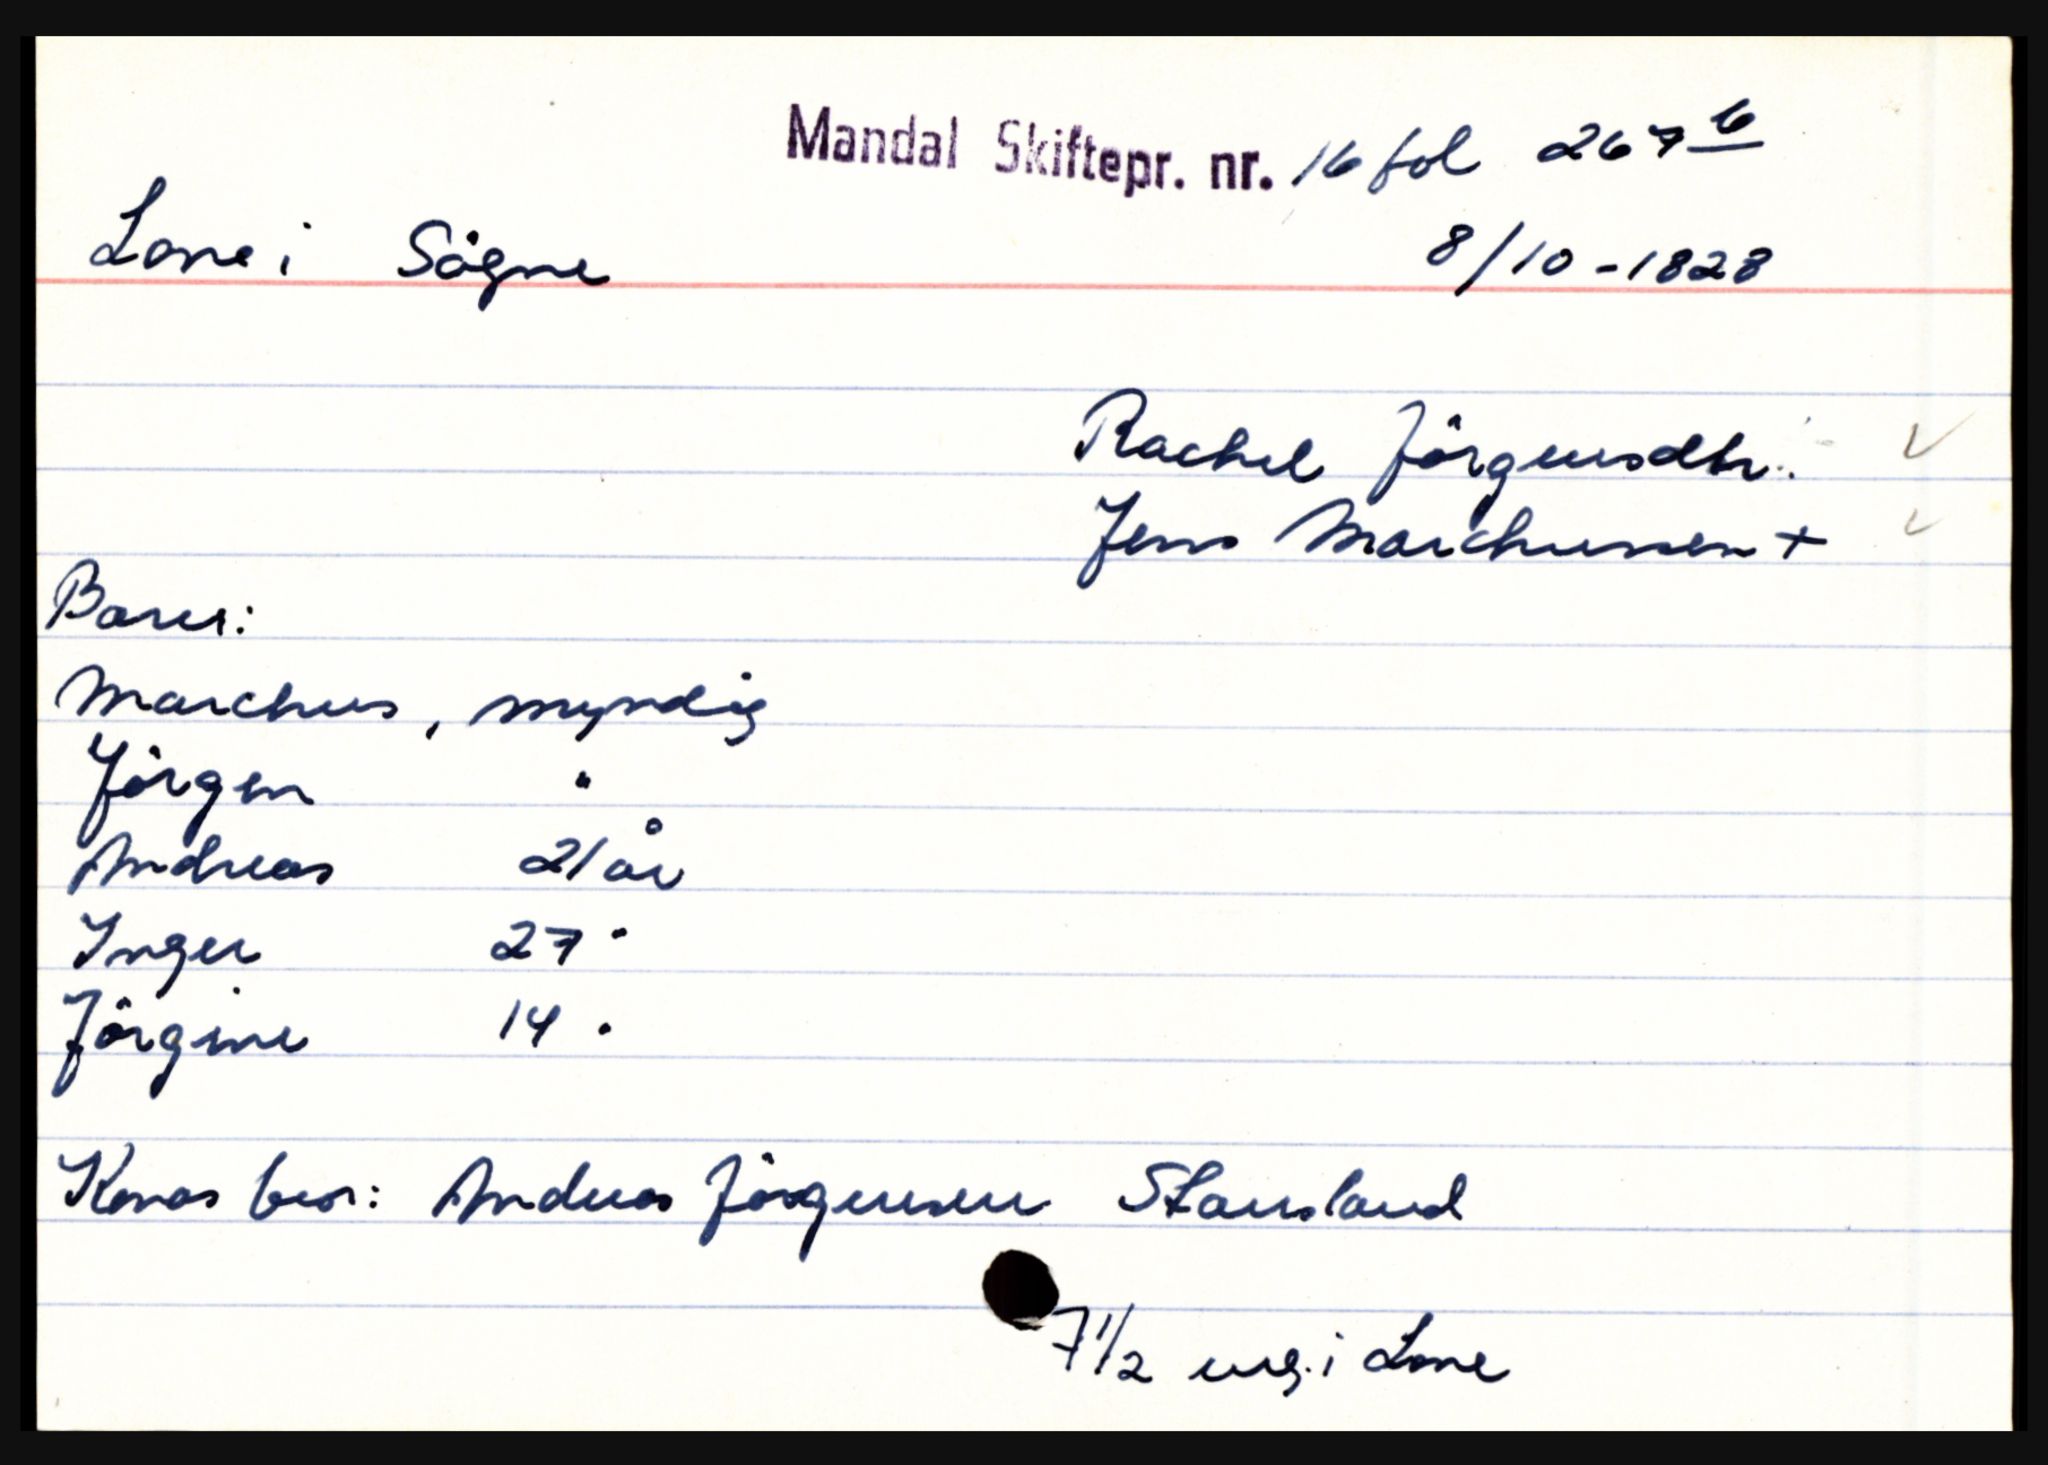 Mandal Skiftepr. nr. 16 fol 267 b
Lone i Sögne 8/10-1828
Rachel Jörgensdtr.
Jens Marchussen +
Barn:
Marchus, myndig
Jörgen "
Andreas 21 år
Inger 27 "
Jörgine 14 "
Konas bror: Andreas Jörgensen Stausland
7 1/2 eng. i Lone